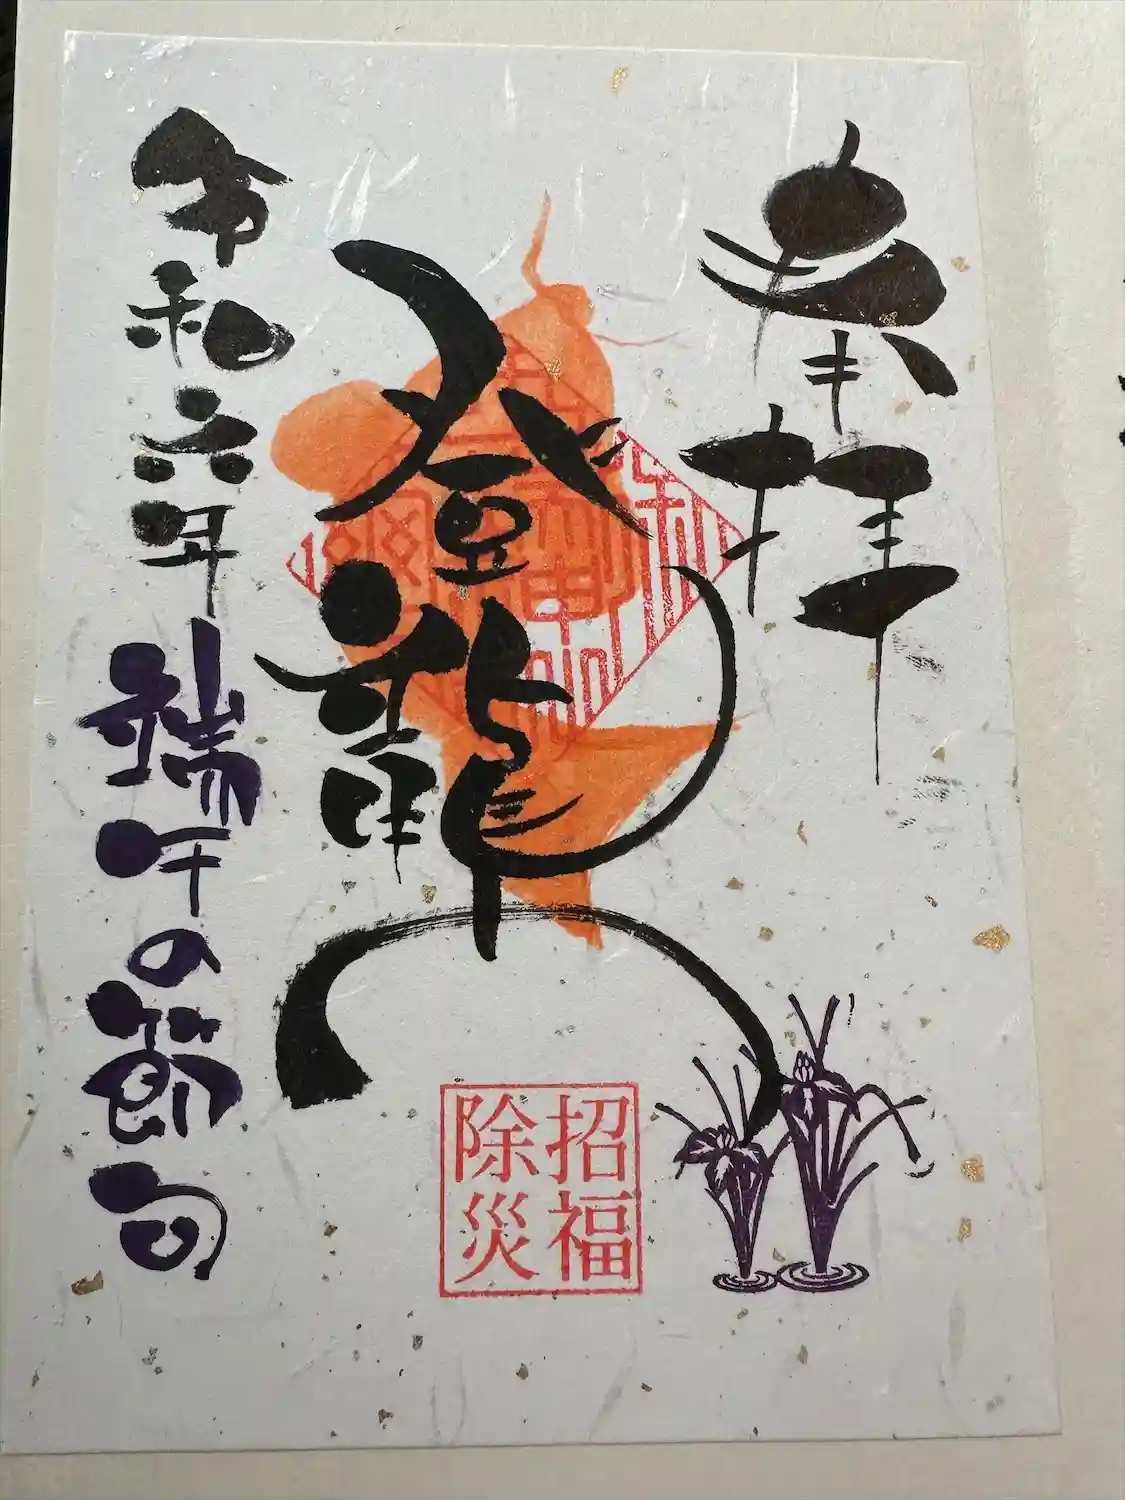 奉拝
登龍
招福
除災
令和六年端午の節句